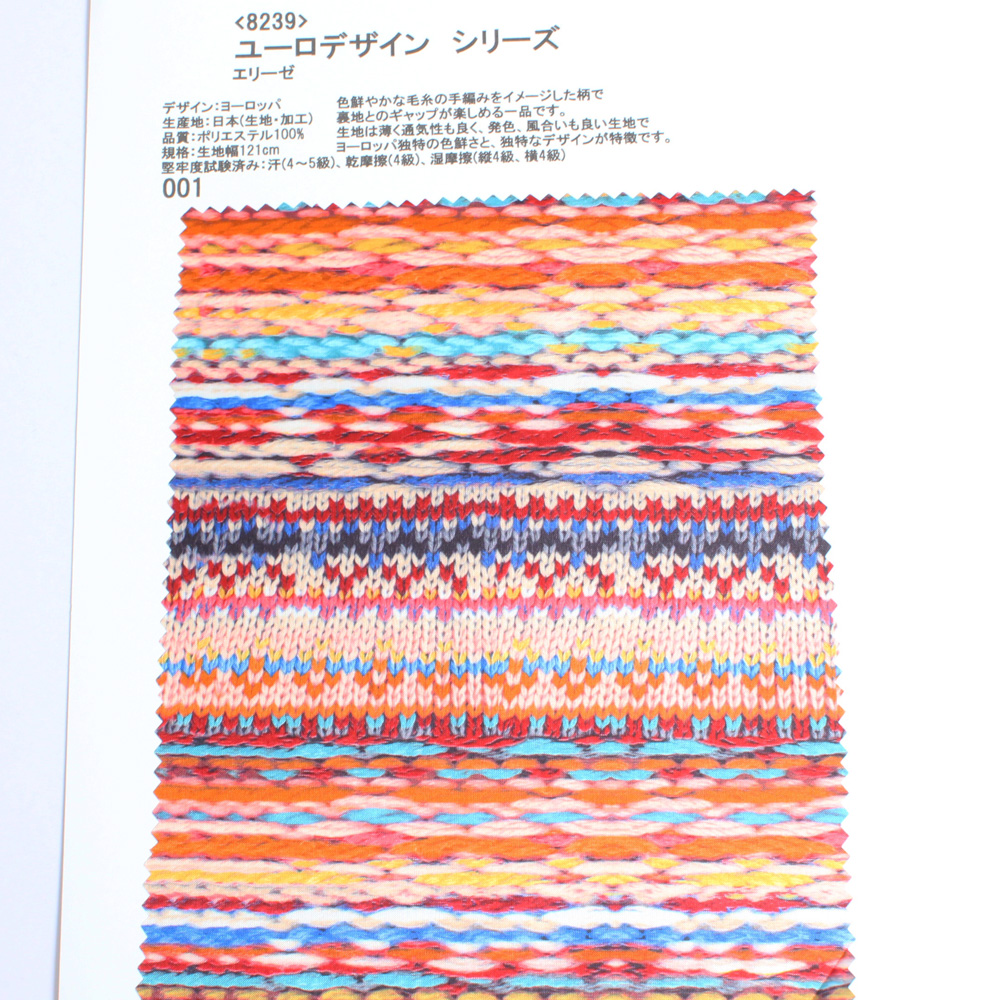 <8239>
ユーロデザイン シリーズ
エリーゼ
デザイン:ヨーロッパ
生産地:日本(生地・加工)
品質:ポリエステル100%
規格:生地幅121cm
堅牢度試験済み:汗(4～5級)、乾摩擦(4級)、湿摩擦(縦4級、横4級)
色鮮やかな毛糸の手編みをイメージした柄で
裏地とのギャップが楽しめる一品です。
生地は薄く通気性も良く、発色、風合いも良い生地で
ヨーロッパ独特の色鮮さと、独特なデザインが特徴です。
001